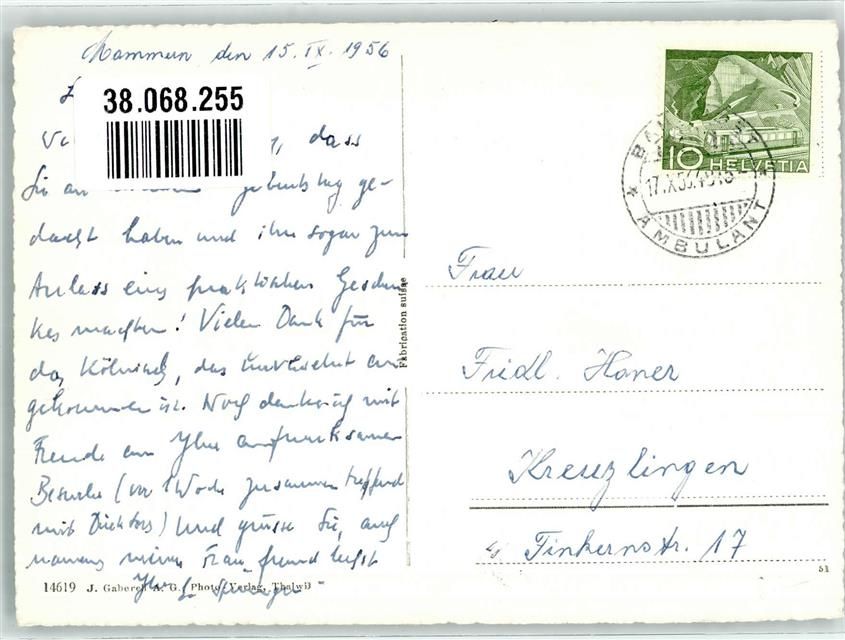 Mammern den 15. IX. 1956
38.068.255
dass
Sie an Geburtstag ge-
dacht haben und ihn sogar zum
Anlass eines praktischen Geschen
kes machten! Vielen Dank für
das Kölnisch, das unversehrt an
gekommen ist. Noch denke ich mit
Freude an Ihre aufmerksamen
Besuche (vor 1 Woche zusammentreffend
mit Doktors) und grüsse Sie, auch
namens meiner Frau, freundlichst
Ihr
14619 J. Gaberell A. G., Photo-Verlag, Thalwil
Fabrication suisse
10 HELVETIA
AMBULANT
Frau
Fridl. Haner
Kreuzlingen
Finkernstr. 17
51